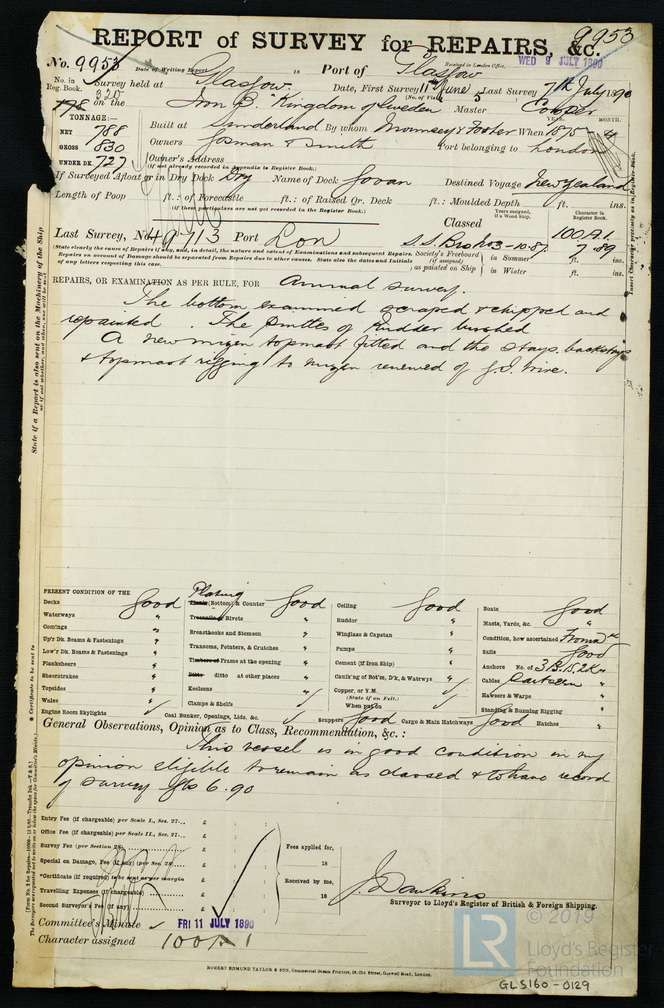 9953
REPORT of SURVEY for REPAIRS, &c.
No. 9953 Date of Writing Report 18 Port of Glasgow Received in London Office WED 9 JULY 1890
No. in Reg. Book. Survey held at Glasgow Date, First Survey 11th June Last Survey 7th July 1890
(No. of Visits 3)
on the Iron B. "Kingdom of Sweden" Master Cooper
TONNAGE:—
NET 788
GROSS 830
UNDER DK. 727
Built at Sunderland By whom Mounsey & Foster When 1875
YEAR. MONTH.
Owners Josman & Smith Port belonging to London
Owner's Address
(if not already recorded in Appendix to Register Book.)
If Surveyed Afloat or in Dry Dock Dry Name of Dock Govan Destined Voyage New Zealand
Length of Poop ft. : of Forecastle ft. : of Raised Qr. Deck ft. : Moulded Depth ft. ins.
(if these particulars are not yet recorded in the Register Book.)
Years assigned, if a Wood Ship. Character in Register Book.
Classed 100A1
Last Survey, No. 49713 Port Lon S.S. 3-10-87 7.89
(State clearly the cause of Repairs if any, and, in detail, the nature and extent of Examinations and subsequent Repairs.
Repairs on account of Damage should be separated from Repairs due to other causes. State also the dates and Initials
of any letters respecting this case.
Society's Freeboard (if assigned) as painted on Ship in Summer ft. ins.
in Winter ft. ins.
REPAIRS, OR EXAMINATION AS PER RULE, FOR Annual survey.
The bottom examined scraped & chipped and
repainted. The pintles of Rudder bushed
A new mizen topmast fitted and the stays, backstays
& topmast rigging to mizen renewed of G.I. wire.
PRESENT CONDITION OF THE
Decks Good
Waterways "
Comings "
Up'r Dk. Beams & Fastenings "
Low'r Dk. Beams & Fastenings "
Planksheers "
Sheerstrakes "
Topsides "
Wales
Engine Room Skylights
Plating
Plank (Bottom) & Counter Good
Treenails or Rivets "
Breasthooks and Stemson "
Transoms, Pointers, & Crutches "
Timbers or Frame at the opening "
Ditto ditto at other places "
Keelsons "
Clamps & Shelfs
Coal Bunker, Openings, Lids, &c.
Ceiling Good
Rudder "
Windlass & Capstan "
Pumps "
Cement (if Iron Ship) "
Caulk'ng of Bot'm, D'k, & Watrwys "
Copper, or Y.M.
(State if on Felt.)
When put on
Scuppers Good Cargo & Main Hatchways Good Hatches "
Boats Good
Masts, Yards, &c. "
Condition, how ascertained From dk
Sails Good
Anchors No. of 3B. 1S. 2K "
Cables
Hawsers & Warps "
Standing & Running Rigging "
General Observations, Opinion as to Class, Recommendation, &c. :
This vessel is in good condition in my
opinion eligible to remain as classed & to have record
of survey Gls 6.90
Entry Fee (if chargeable) per Scale I., Sec. 27... £ :
Office Fee (if chargeable) per Scale II., Sec. 27... £ :
Survey Fee (per Section 28) £ :
Special on Damage, Fee (if any) (per Sec. 28) £ :
*Certificate (if required) to be sent as per margin £ :
Travelling Expenses (if chargeable) £ :
Second Surveyor's Fee (if any) £ :
Fees applied for, 18
Received by me, 18
J. Dawkins
Surveyor to Lloyd's Register of British & Foreign Shipping.
Committee's Minute FRI 11 JULY 1890
Character assigned 100A1
ROBERT EDMUND TAYLOR & SON, Commercial Steam Printers, 19, Old Street, Goswell Road, London.
State if a Report is also sent on the Machinery of the Ship
* Certificate to be sent to
© 2019
LR Lloyd's Register
Foundation
GLS160-0129